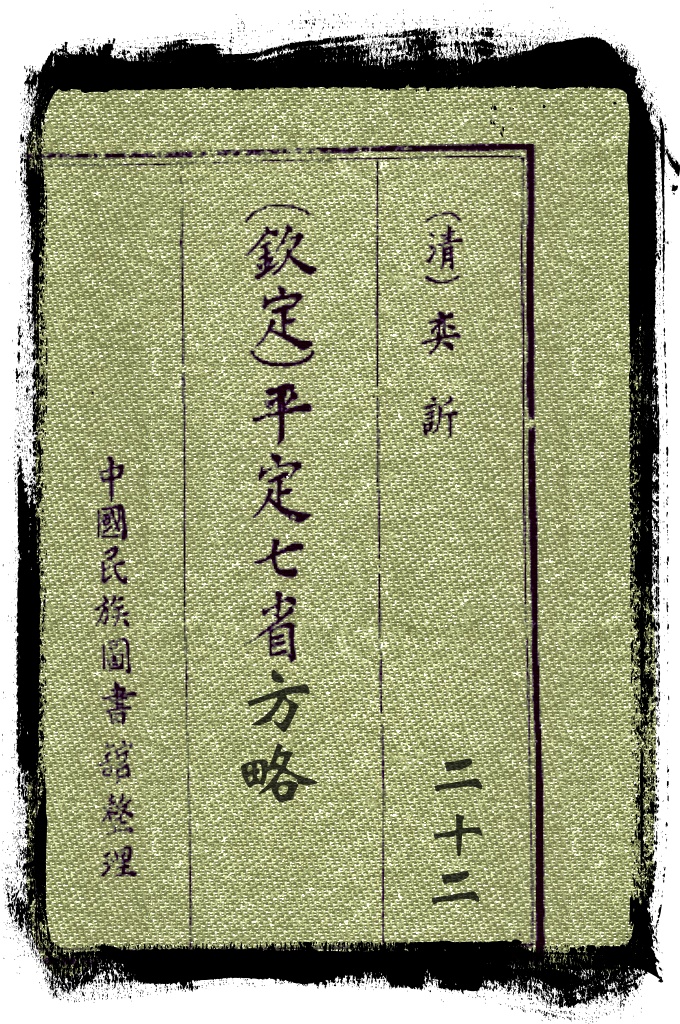 (清)奕訢
二十二
(欽定)平定七省方略
中國民族圖書館整理